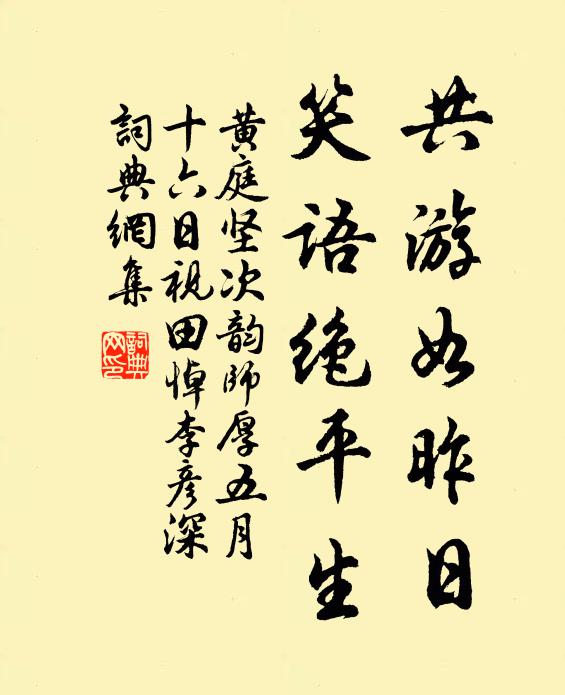 共游如昨日
笑语绝平生
黄庭坚次韵師厚五月
十六日視田悼李彦深
詞典網集
詞典
网印